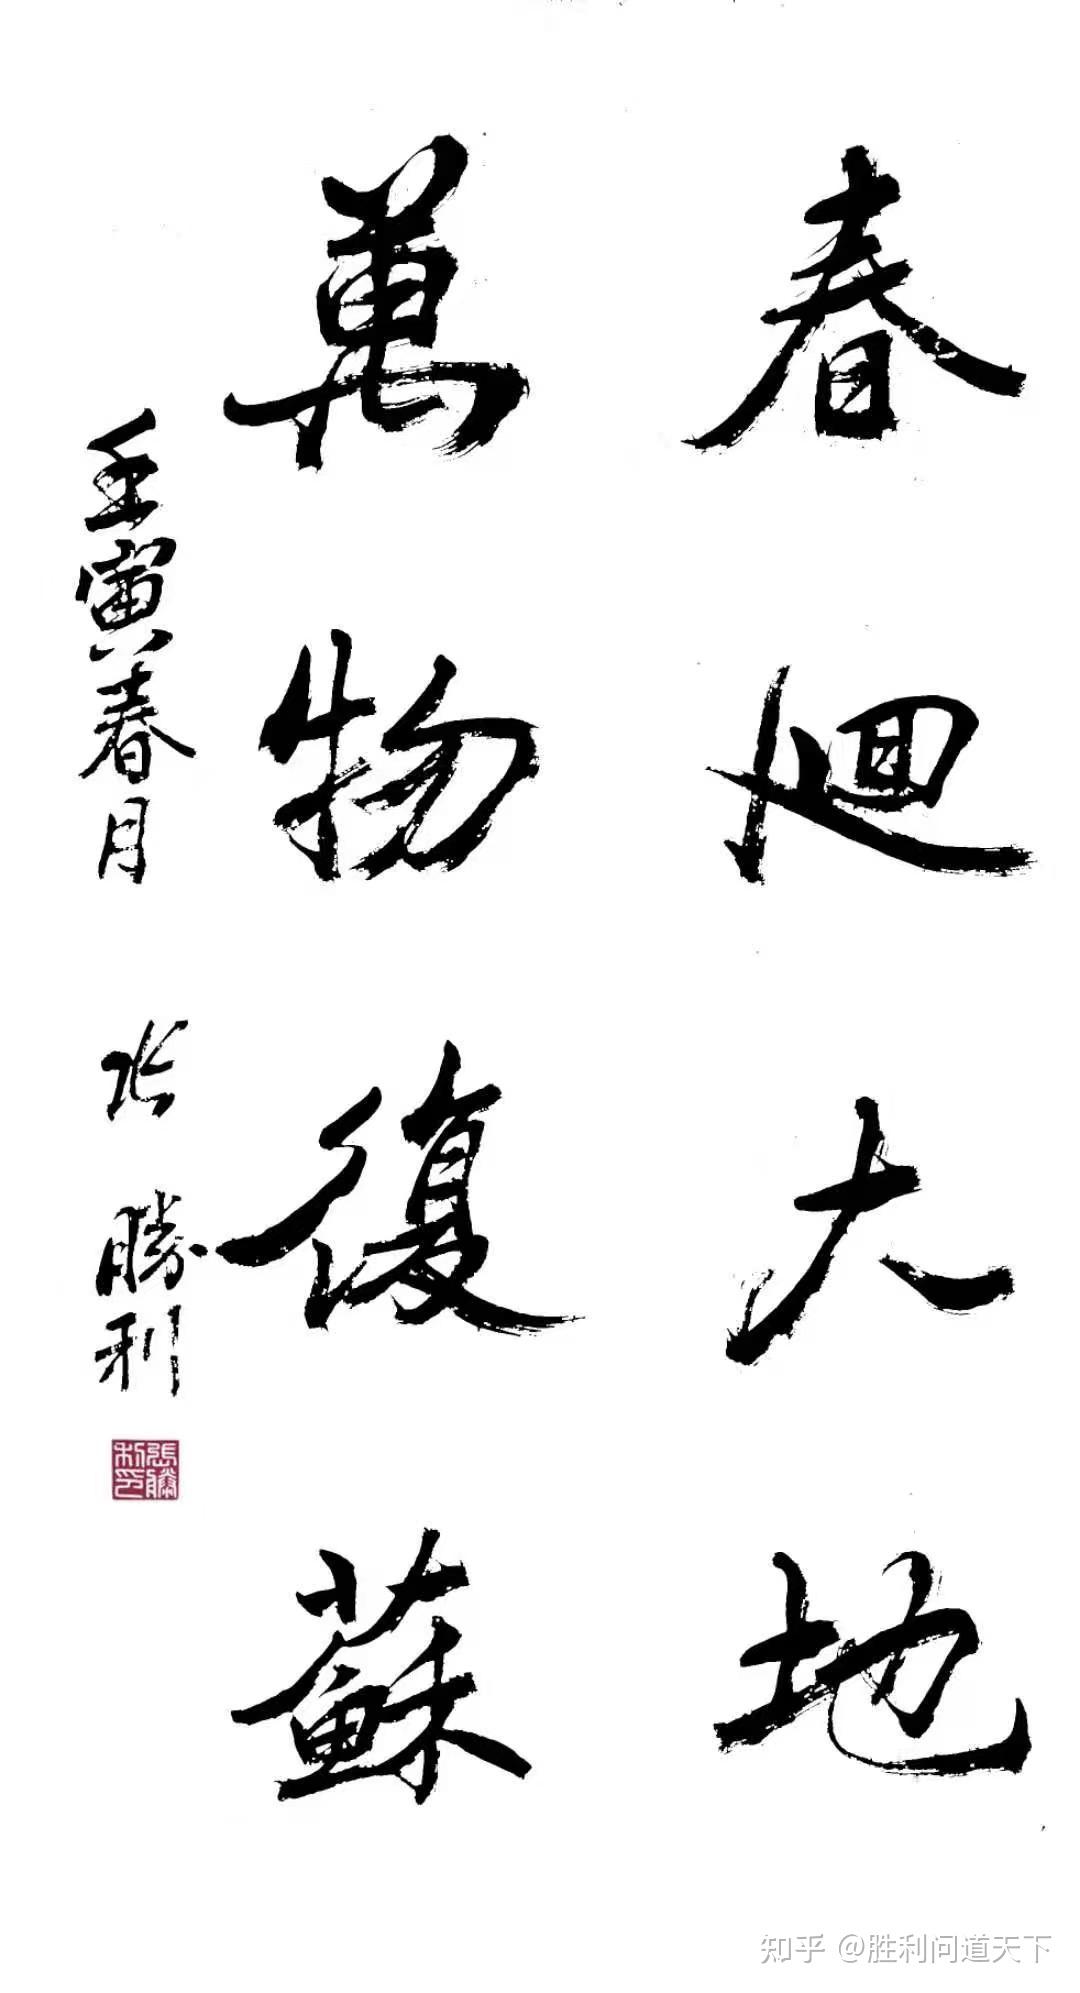 春廻大地
萬物復蘇
壬寅春月
张勝利
張勝利印
知乎 @胜利问道天下